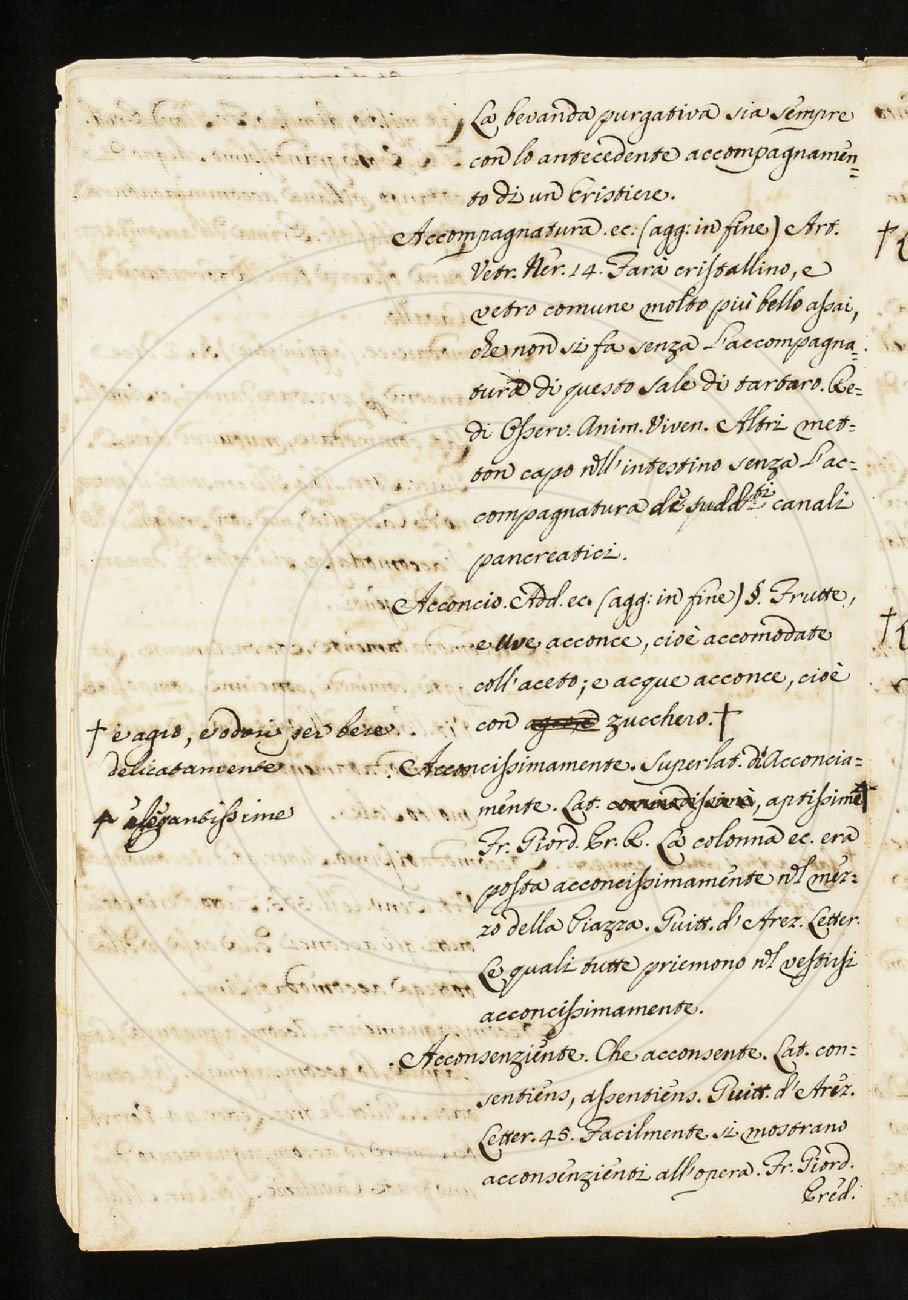 La bevanda purgativa sia sempre
con lo antecedente accompagnamen=
to di un Cristiere.
Accompagnatura. ec. (agg: in fine) Art.
Vetr. Ner. 14. Farà cristallino, e
vetro comune molto più bello assai,
che non si fa senza l'accompagna=
tura di questo sale di tartaro. Re=
di Osserv. Anim. Viven. Altri met=
ton capo nell'intestino senza l'ac=
compagnatura de' sudd.ti canali
pancreatici.
Acconcio. Add. ec. (agg: in fine) §. Frutte,
e Uve acconce, cioè accomodate
coll'aceto; e acque acconce, cioè
con zucchero. †
† e agio, e odori per bere
delicatamente
Acconcissimamente. Superlat. di Acconcia=
mente. Lat. aptissime †
† elegantissime
Fr. Giord. Pr. R. La colonna ec. era
posta acconcissimamente nel mez=
zo della Piazza. Guitt. d'Arez. Letter.
Le quali tutte priemono nel vestirsi
acconcissimamente.
Acconsenziente. Che acconsente. Lat. con=
sentiens, assentiens. Guitt. d'Arez.
Letter. 45. Facilmente si mostrano
acconsenzienti all'opera. Fr. Giord.
Pred.